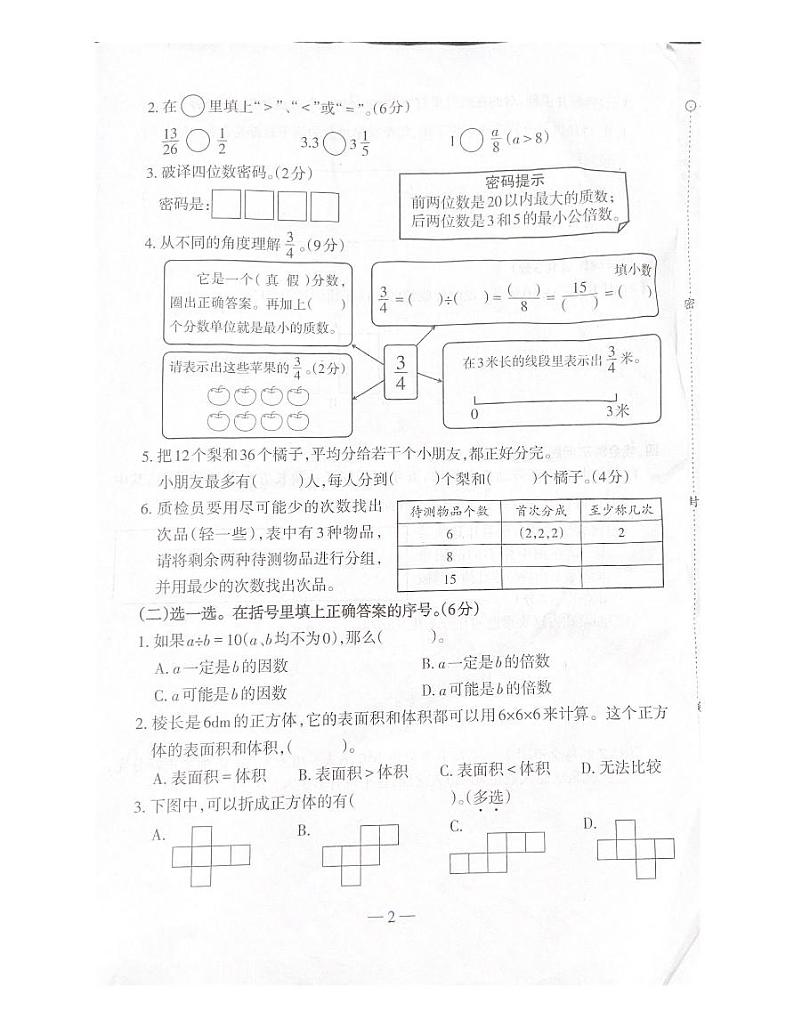 2. 在○里填上“>”、“<”或“=”。(6分)
13/26 ○ 1/2 3.3 ○ 3 1/5 1 ○ a/8 (a>8)
3. 破译四位数密码。(2分)
密码是:
密码提示
前两位数是20以内最大的质数;
后两位数是3和5的最小公倍数。
4. 从不同的角度理解 3/4 。(9分)
它是一个( 真 假 )分数,
圈出正确答案。再加上( )
个分数单位就是最小的质数。
填小数
3/4 = ( )÷( ) = ( )/8 = 15/( ) = ( )
请表示出这些苹果的 3/4 。(2分)
3/4
在3米长的线段里表示出 3/4 米。
0 3米
5. 把12个梨和36个橘子,平均分给若干个小朋友,都正好分完。
小朋友最多有( )人,每人分到( )个梨和( )个橘子。(4分)
6. 质检员要用尽可能少的次数找出
次品(轻一些),表中有3种物品,
请将剩余两种待测物品进行分组,
并用最少的次数找出次品。
待测物品个数 首次分成 至少称几次
6 (2,2,2) 2
8
15
(二)选一选。在括号里填上正确答案的序号。(6分)
1. 如果a÷b=10(a、b均不为0),那么( )。
A. a一定是b的因数 B. a一定是b的倍数
C. a可能是b的因数 D. a可能是b的倍数
2. 棱长是6dm的正方体,它的表面积和体积都可以用6×6×6来计算。这个正方
体的表面积和体积,( )。
A. 表面积=体积 B. 表面积>体积 C. 表面积<体积 D. 无法比较
3. 下图中,可以折成正方体的有( )。(多选)
A. B. C. D.
— 2 —
密
封